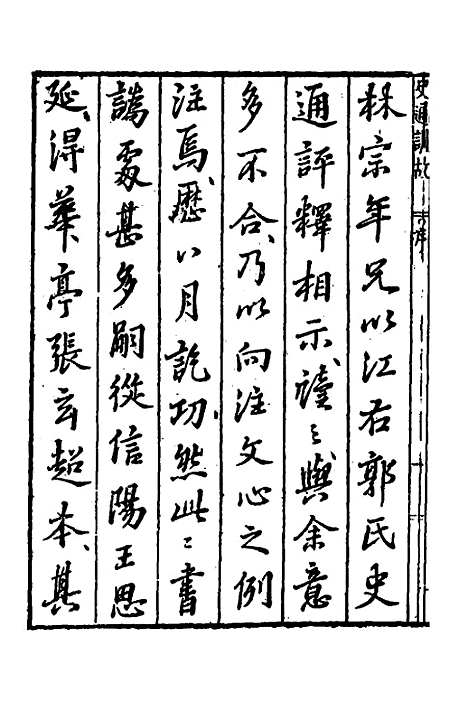 史通訓故 序
林宗年兄以江右郭氏史
通評釋相示讀之與余意
多不合乃以向注文心之例
注焉歷八月訖功然此〻書
譌處甚多嗣從信陽王思
延得華亭張玄超本其